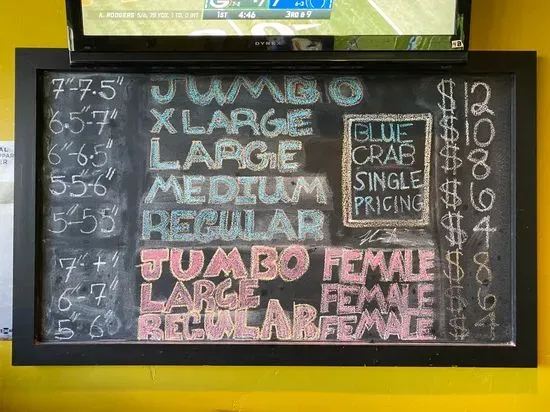 A. RODGERS 5/6, 75 YDS, 1 TD, 0 INT
1ST 4:46 3RD & 9
DYNEX
7"-7.5" JUMBO $12
6.5"-7" XLARGE $10
6"-6.5" LARGE $8
5.5-6" MEDIUM $6
5"-5.5" REGULAR $4
BLUE
CRAB
SINGLE
PRICING
7"+" JUMBO FEMALE $8
6-7" LARGE FEMALE $6
5"-6" REGULAR FEMALE $4